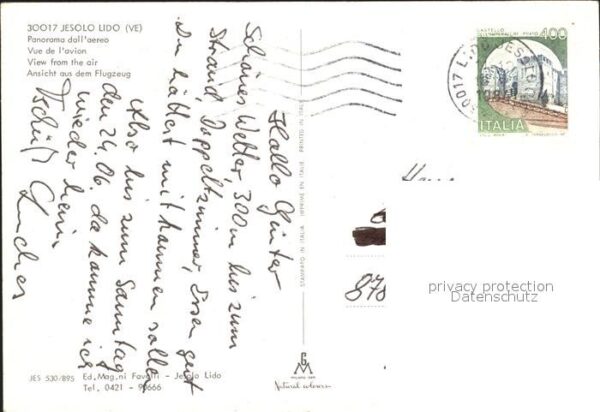 30017 JESOLO LIDO (VE)
Panorama dall'aereo
Vue de l'avion
View from the air
Ansicht aus dem Flugzeug
Hallo Günter
Schönes Wetter, 300m bis zum
Strand, Doppelzimmer, Essen gut
Du hättest mitkommen sollen
Also bis zum Samstag
den 24.06. da komme ich
wieder heim
Tschüß
JES 530/895
Ed. Mag.ni Favetti - Jesolo Lido
Tel. 0421 - 90666
STAMPATO IN ITALIA IMPRIMÉ EN ITALIE PRINTED IN ITALY
GM
Natural colours
CASTELLO
400
ITALIA
30017 LIDO JESOLO
870
privacy protection
Datenschutz